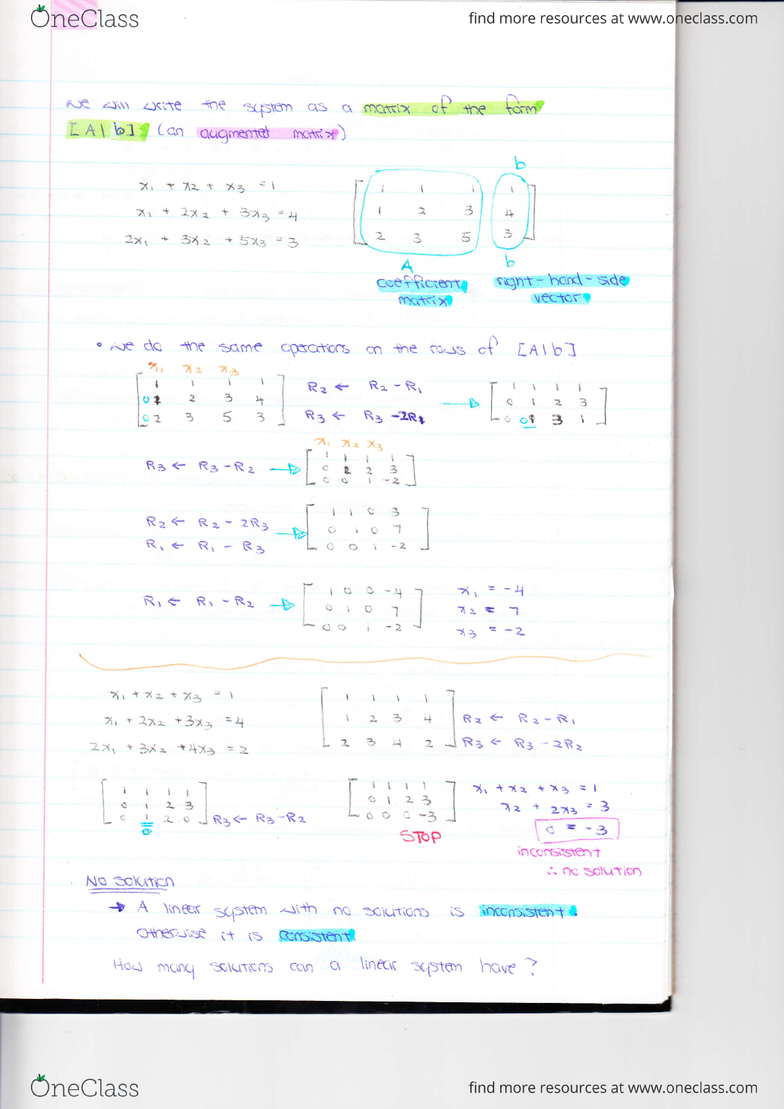 OneClass
find more resources at www.oneclass.com
we will write the system as a matrix of the form
[A|b] (an augmented matrix)
b
x₁ + x₂ + x₃ = 1
x₁ + 2x₂ + 3x₃ = 4
2x₁ + 3x₂ + 5x₃ = 3
1 1 1 1
1 2 3 4
2 3 5 3
A b
coefficient right-hand-side
matrix vector
• we do the same operations on the rows of [A|b]
x₁ x₂ x₃
1 1 1 1
2 3 4
0 2 3 5 3
R₂ ← R₂ - R₁
R₃ ← R₃ - 2R₁
1 1 1 1
0 1 2 3
0 1 3 1
x₁ x₂ x₃
R₃ ← R₃ - R₂
1 1 1 1
0 1 2 3
0 0 1 -2
R₂ ← R₂ - 2R₃
R₁ ← R₁ - R₃
1 1 0 3
0 1 0 7
0 0 1 -2
R₁ ← R₁ - R₂
1 0 0 -4
0 1 0 7
0 0 1 -2
x₁ = -4
x₂ = 7
x₃ = -2
x₁ + x₂ + x₃ = 1
x₁ + 2x₂ + 3x₃ = 4
2x₁ + 3x₂ + 4x₃ = 2
1 1 1 1
1 2 3 4
2 3 4 2
R₂ ← R₂ - R₁
R₃ ← R₃ - 2R₂
1 1 1 1
0 1 2 3
0 1 2 0
0
R₃ ← R₃ - R₂
1 1 1 1
0 1 2 3
0 0 0 -3
STOP
x₁ + x₂ + x₃ = 1
x₂ + 2x₃ = 3
0 = -3
inconsistent
∴ no solution
No solution
→ A linear system with no solutions is inconsistent.
otherwise it is consistent
How many solutions can a linear system have?
OneClass
find more resources at www.oneclass.com